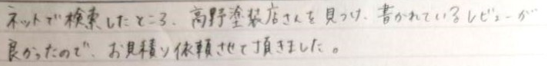 ネットで検索したところ、高野塗装店さんを見つけ、書かれているレビューが
良かったので、お見積り依頼させて頂きました。